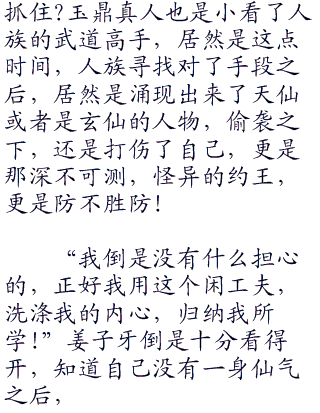 抓住?玉鼎真人也是小看了人
族的武道高手，居然是这点
时间，人族寻找对了手段之
后，居然是涌现出来了天仙
或者是玄仙的人物，偷袭之
下，还是打伤了自己，更是
那深不可测，怪异的约王，
更是防不胜防！
“我倒是没有什么担心
的，正好我用这个闲工夫，
洗涤我的内心，归纳我所
学！”姜子牙倒是十分看得
开，知道自己没有一身仙气
之后，